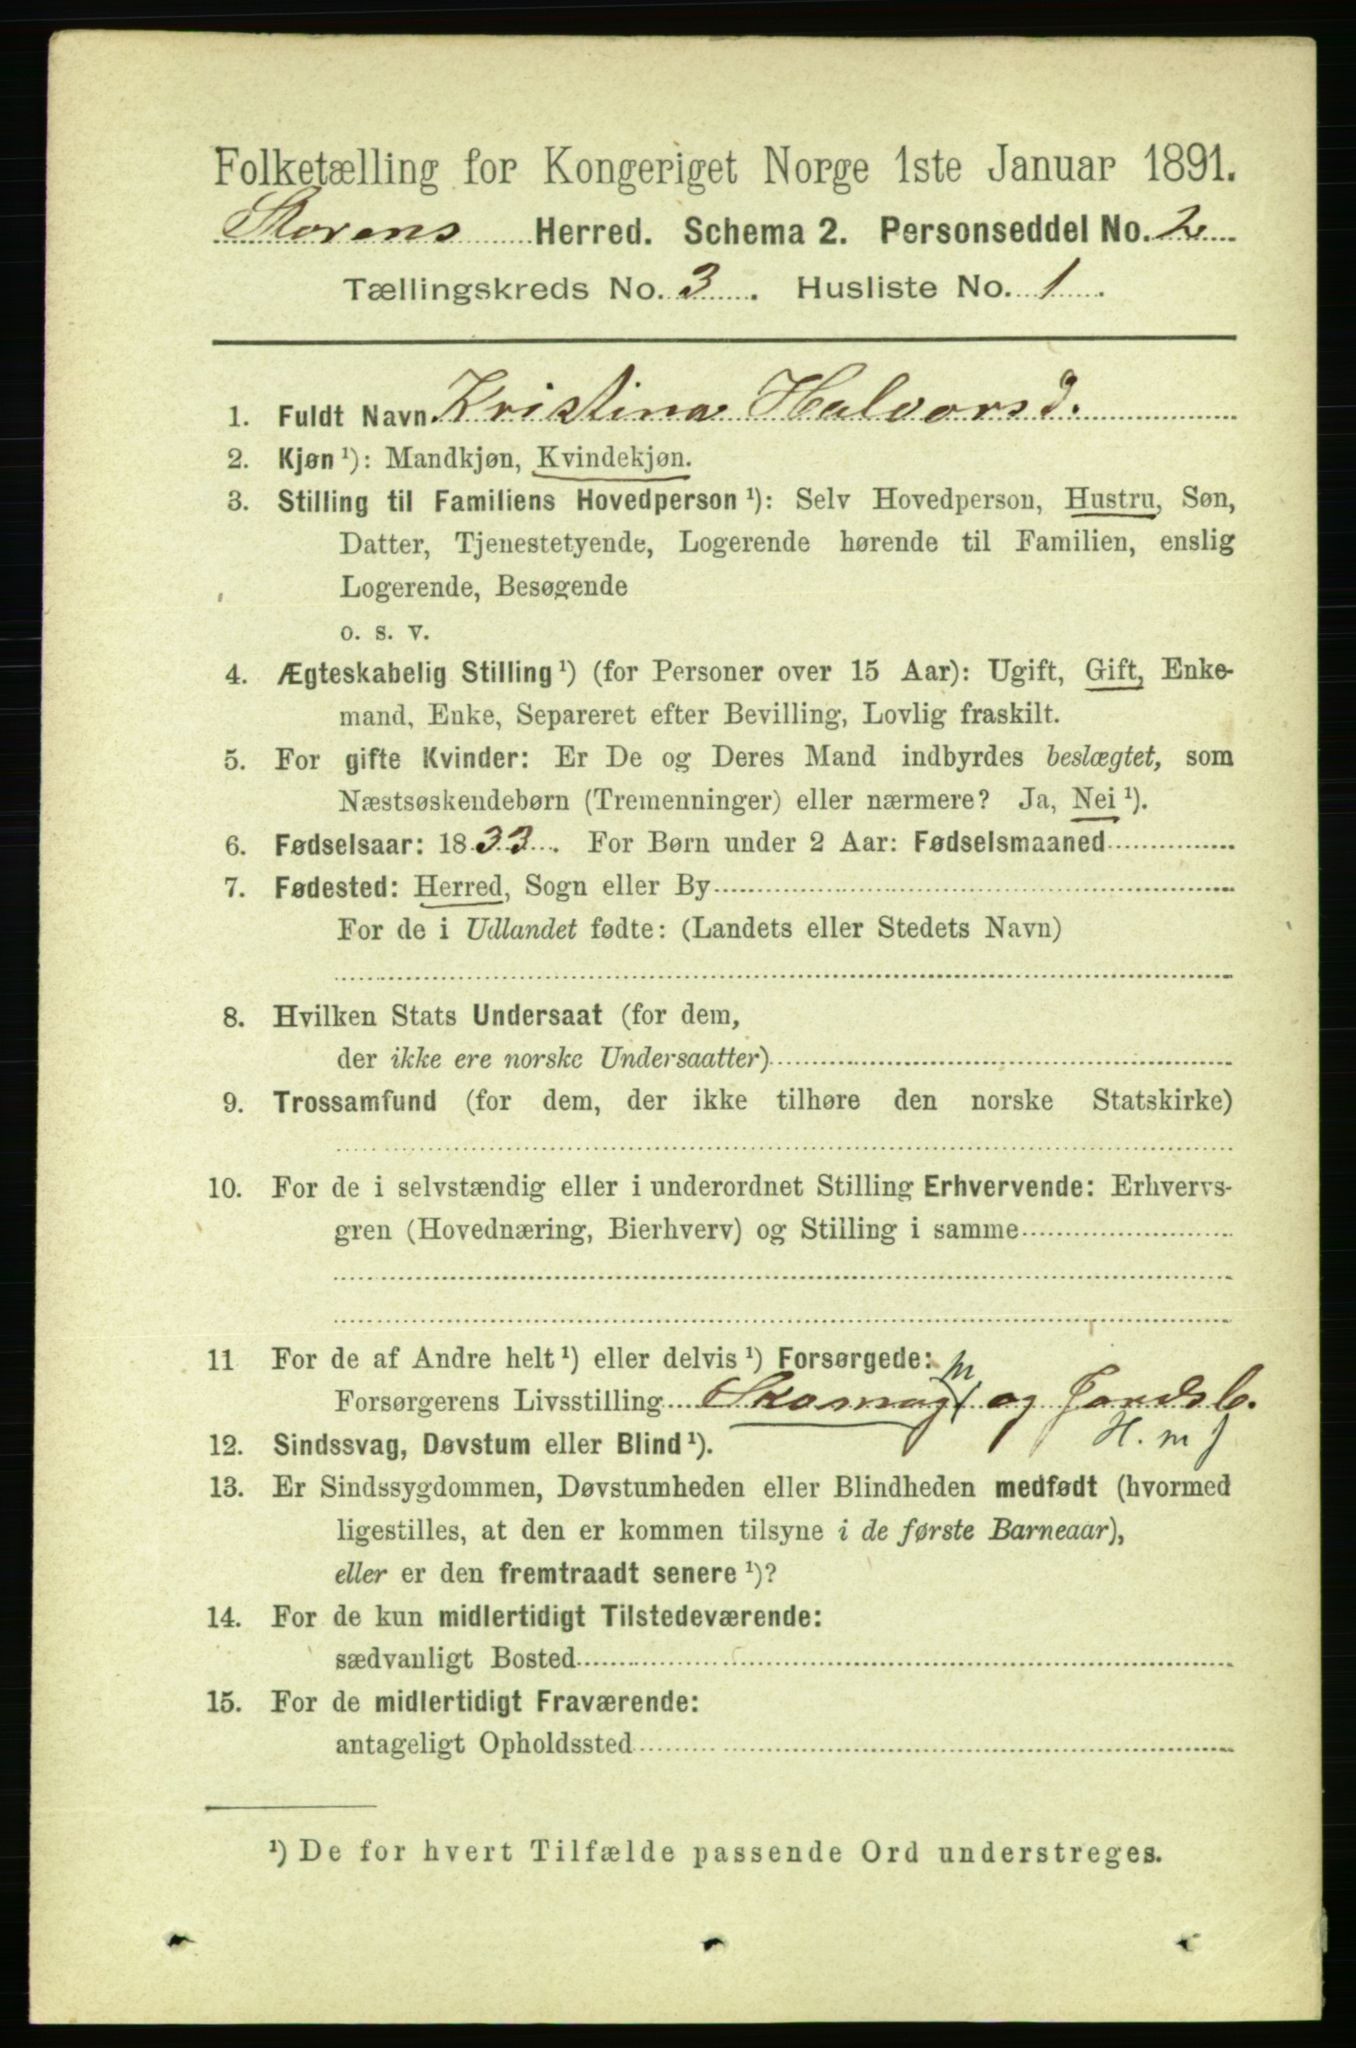 Folketælling for Kongeriget Norge 1ste Januar 1891.
Storens Herred. Schema 2. Personseddel No. 2
Tællingskreds No. 3. Husliste No. 1.
1. Fuldt Navn Kristina Halvorsd.
2. Kjøn ¹): Mandkjøn, Kvindekjøn.
3. Stilling til Familiens Hovedperson ¹): Selv Hovedperson, Hustru, Søn,
Datter, Tjenestetyende, Logerende hørende til Familien, enslig
Logerende, Besøgende
o. s. v.
4. Ægteskabelig Stilling ¹) (for Personer over 15 Aar): Ugift, Gift, Enke-
mand, Enke, Separeret efter Bevilling, Lovlig fraskilt.
5. For gifte Kvinder: Er De og Deres Mand indbyrdes beslægtet, som
Næstsøskendebørn (Tremenninger) eller nærmere? Ja, Nei ¹).
6. Fødselsaar: 1833. For Børn under 2 Aar: Fødselsmaaned
7. Fødested: Herred, Sogn eller By
For de i Udlandet fødte: (Landets eller Stedets Navn)
8. Hvilken Stats Undersaat (for dem,
der ikke ere norske Undersaatter)
9. Trossamfund (for dem, der ikke tilhøre den norske Statskirke)
10. For de i selvstændig eller i underordnet Stilling Erhvervende: Erhvervs-
gren (Hovednæring, Bierhverv) og Stilling i samme
11 For de af Andre helt ¹) eller delvis ¹) Forsørgede: m
Forsørgerens Livsstilling Skomag og Jordsb.
H. m j
12. Sindssvag, Døvstum eller Blind ¹).
13. Er Sindssygdommen, Døvstumheden eller Blindheden medfødt (hvormed
ligestilles, at den er kommen tilsyne i de første Barneaar),
eller er den fremtraadt senere ¹)?
14. For de kun midlertidigt Tilstedeværende:
sædvanligt Bosted
15. For de midlertidigt Fraværende:
antageligt Opholdssted
¹) De for hvert Tilfælde passende Ord understreges.